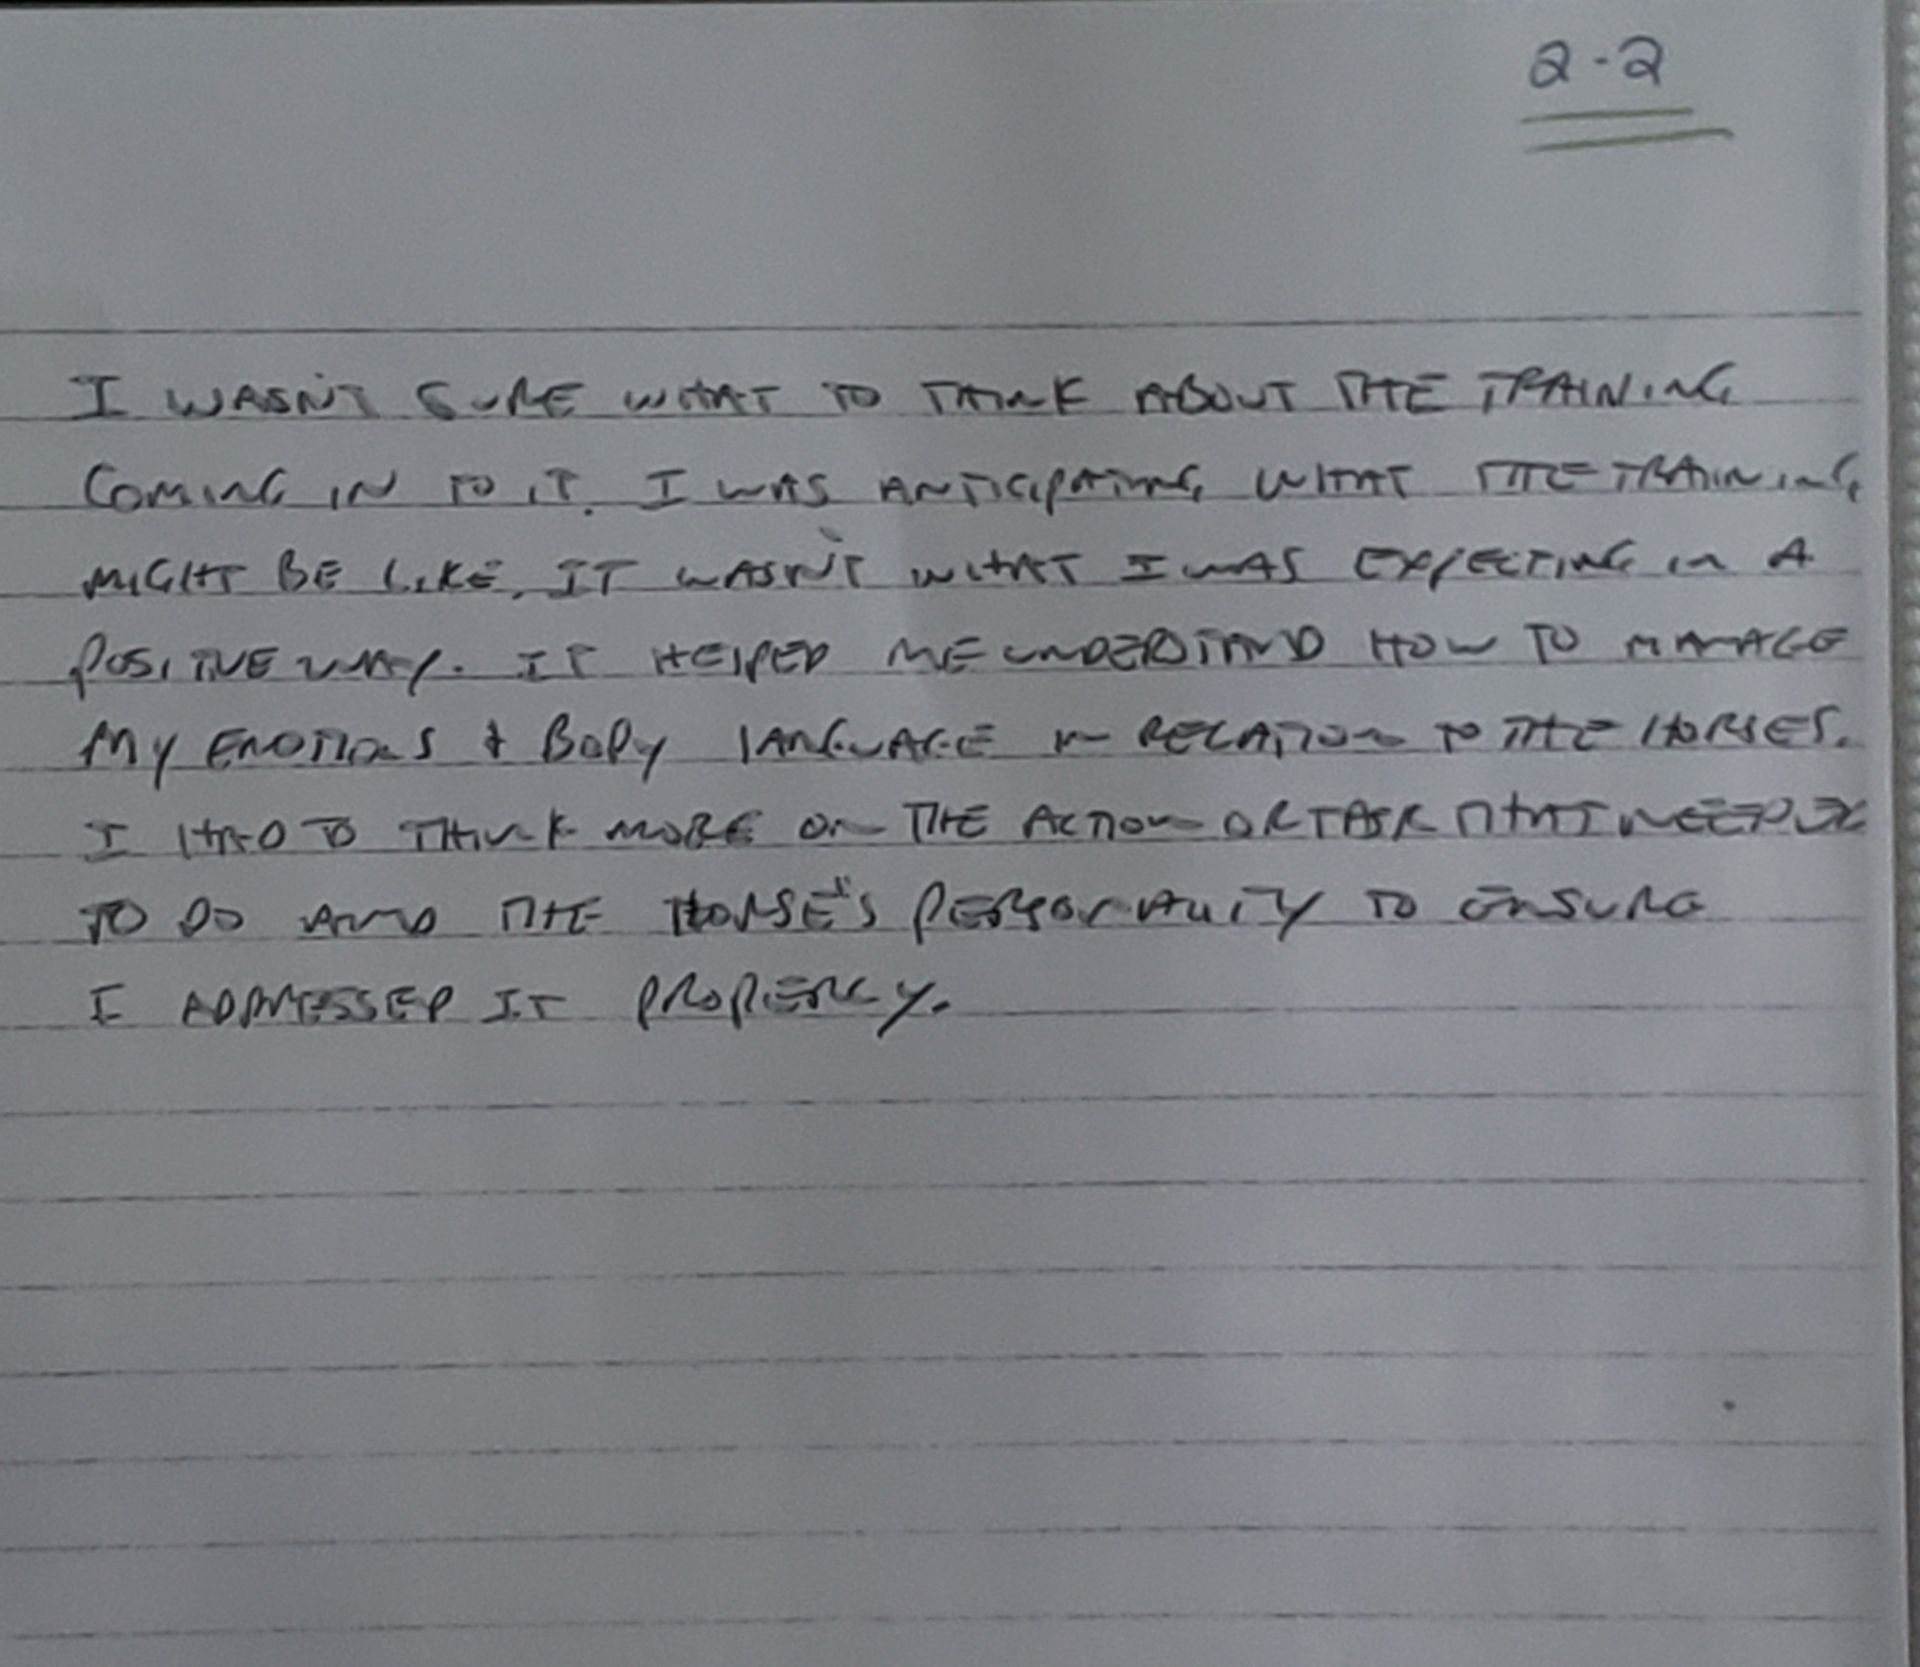 2.2
I WASN'T SURE WHAT TO THINK ABOUT THE TRAINING
COMING IN TO IT. I WAS ANTICIPATING WHAT THE TRAINING
MIGHT BE LIKE. IT WASN'T WHAT I WAS EXPECTING IN A
POSITIVE WAY. IT HELPED ME UNDERSTAND HOW TO MANAGE
MY EMOTIONS & BODY LANGUAGE IN RELATION TO THE HORSES.
I HAD TO THINK MORE ON THE ACTION OR TASK THAT NEEDED
TO DO AND THE HORSE'S PERSONALITY TO ENSURE
I ADDRESSED IT PROPERLY.